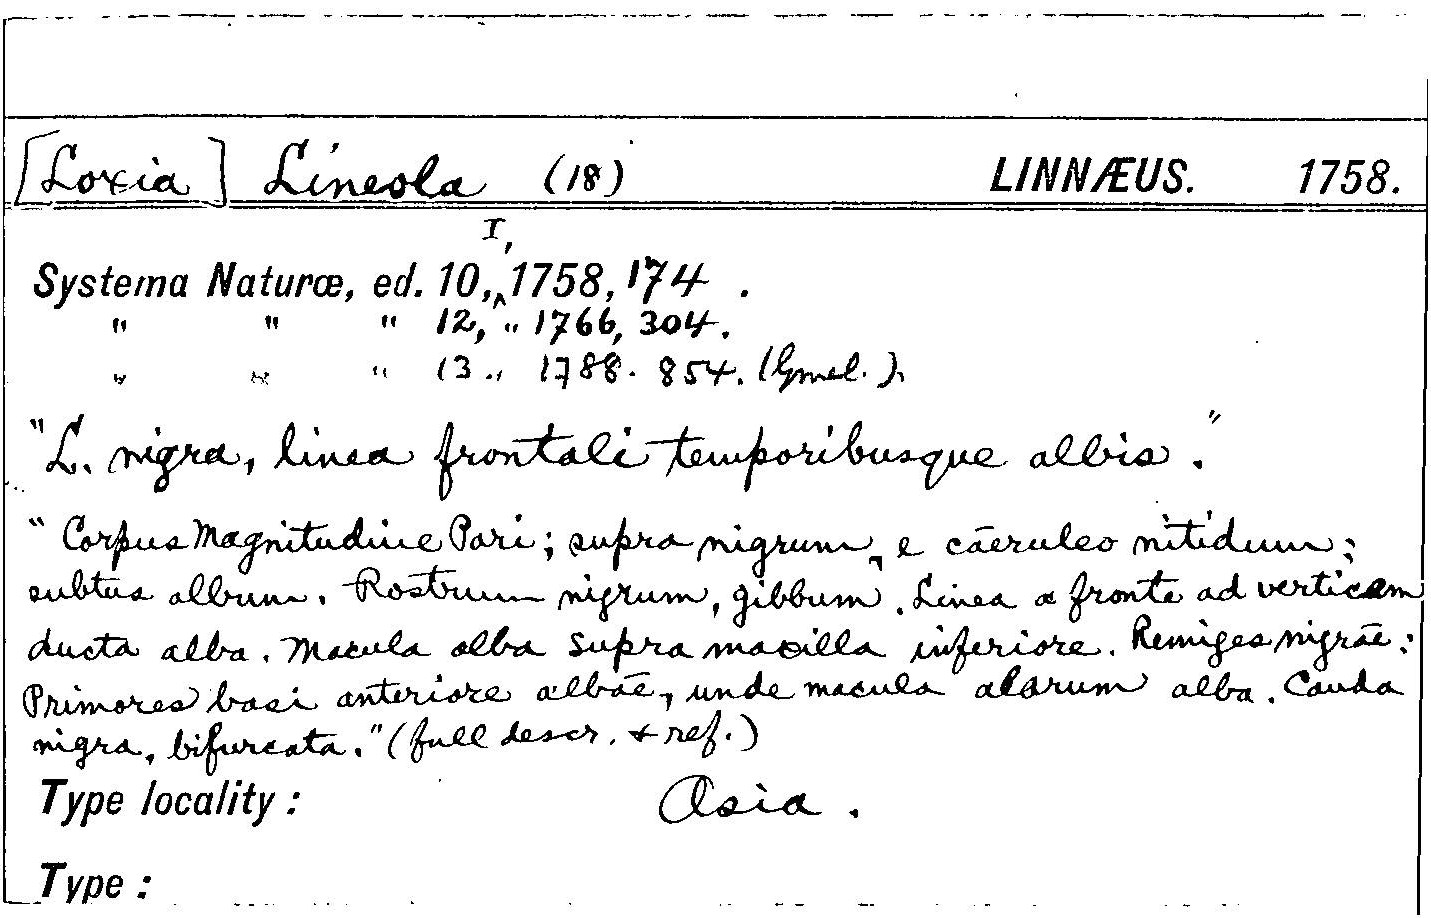 [Loxia] Lineola (18) LINNÆUS. 1758.
I,
Systema Naturæ, ed. 10, ^ 1758, 174 .
" " " 12, " 1766, 304.
" " " 13 ., 1788. 854. (Gmel.).
"L. nigra, linea frontali temporibusque albis."
"Corpus Magnitudine Pari; supra nigrum, e cāeruleo nitidum;
subtus album. Rostrum nigrum, gibbum. Linea a fronte ad verticem
ducta alba. Macula alba supra maxilla inferiore. Remiges nigrāe:
Primores basi anteriore albāe, unde macula alarum alba. Cauda
nigra, bifurcata." (full descr. + ref.)
Type locality: Asia.
Type: